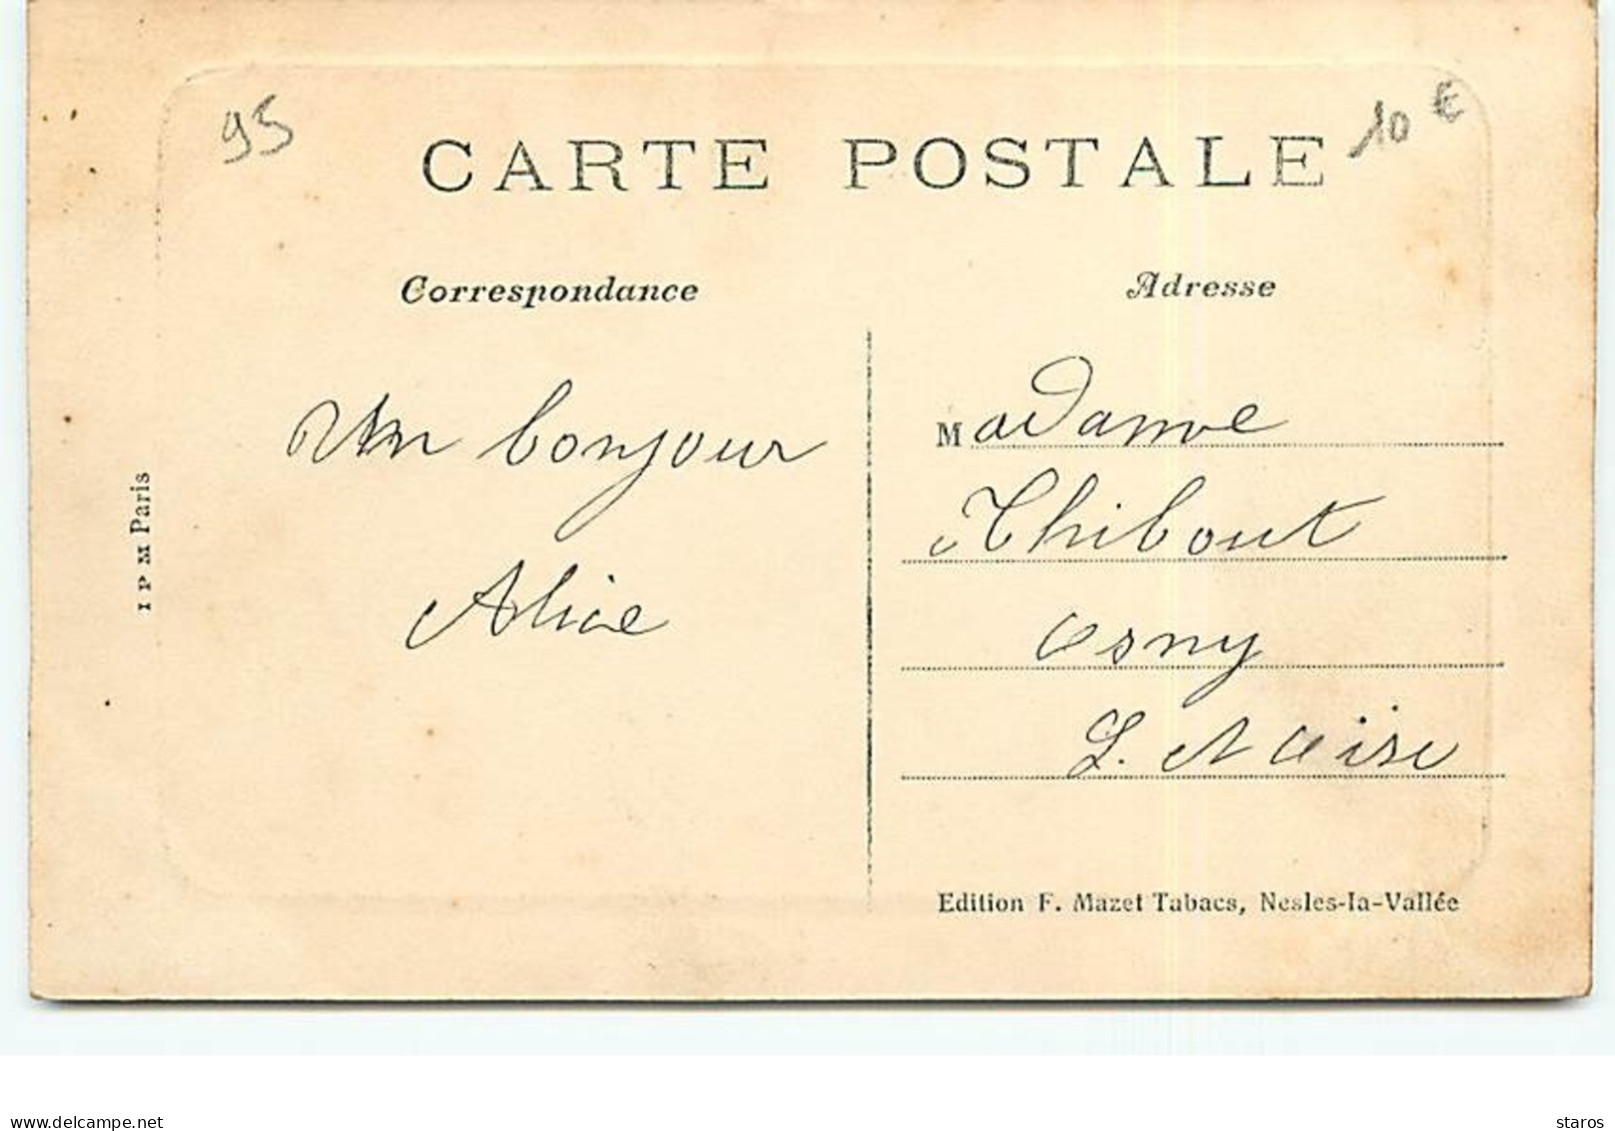 95
10 €
CARTE POSTALE
Correspondance
Adresse
Un bonjour
Alice
Madame
Thibout
Osny
S. et Oise
I P M Paris
Edition F. Mazet Tabacs, Nesles-la-Vallée
www.delcampe.net
staros